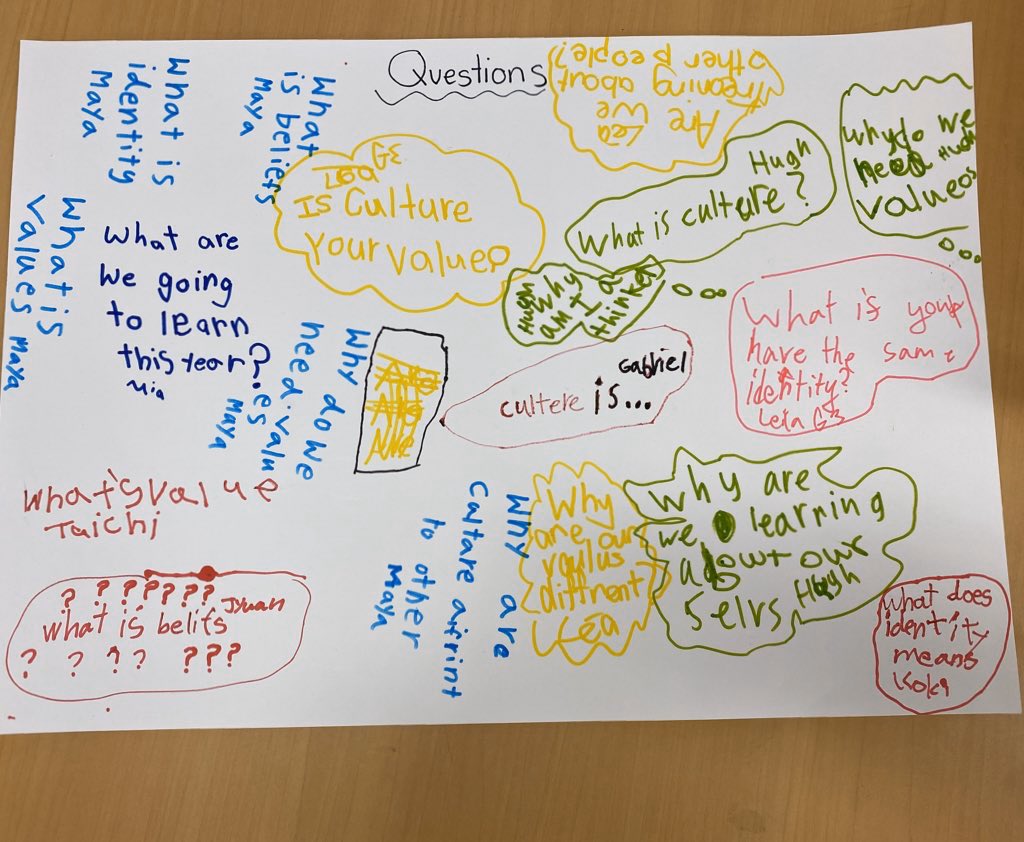 Questions
What is
identity
Maya
What
is beliers
Maya
Are we
Léa
leaning about
other people?
Is Culture
your value?
Hugh
What is culture?
why do we
need Hugh
values
What is
values Maya
What are
we going
to learn
this year?
Mia
Hugh
Why
am I a
thinker
What is your
have the same
identity?
Leia G3
Why do we
need value
es
Maya
Gabriel
cultere is...
What's value
Taichi
? ? ? ? ? ? ?
what is belifs Jyuan
? ? ? ? ? ? ?
Why are
Culture
to other
Maya
Why
are our
diffrent
Léa
Why are
we learning
about our
selvs Hugh
what does
identity
means
Koki